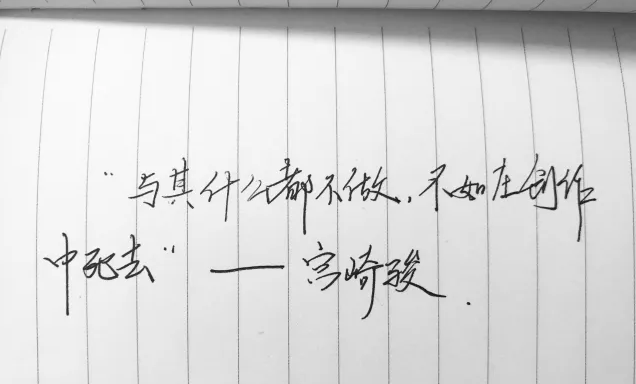 “与其什么都不做，不如在创作
中死去”——宫崎骏.